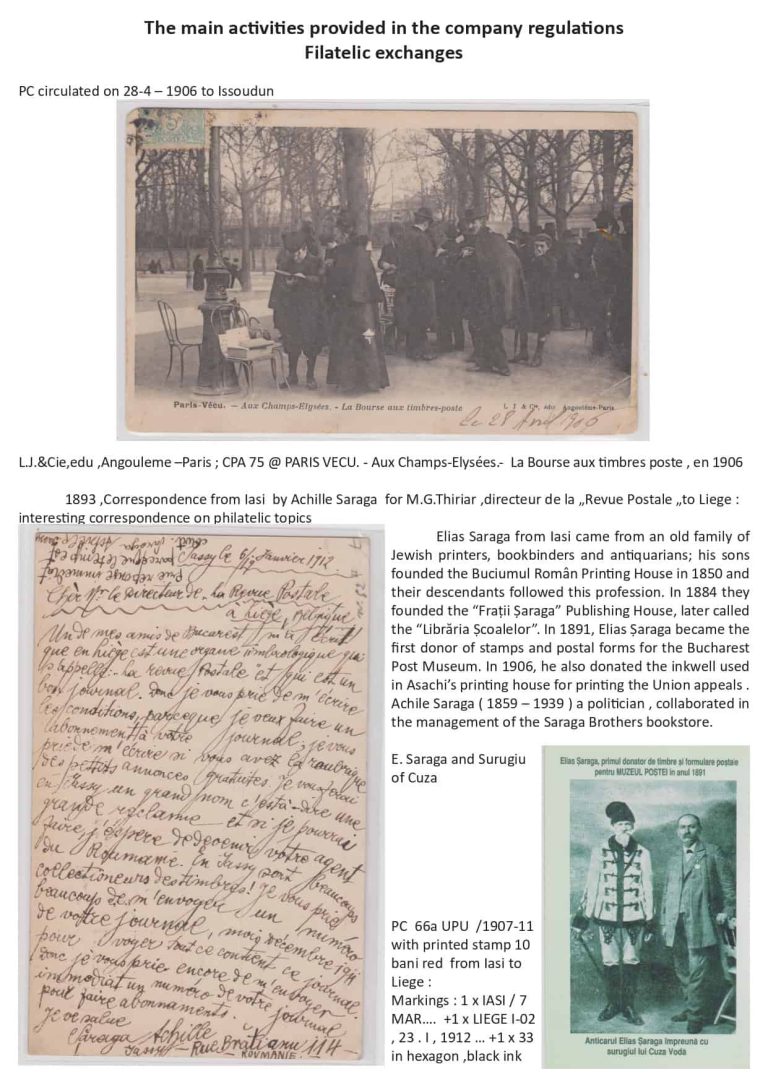 The main activities provided in the company regulations
Filatelic exchanges
PC circulated on 28-4 – 1906 to Issoudun
Paris-Vécu. – Aux Champs-Elysées. - La Bourse aux timbres-poste
L. J & Cie, edu Angoulême-Paris
le 28 Avril 1906
L.J.&Cie,edu ,Angouleme –Paris ; CPA 75 @ PARIS VECU. - Aux Champs-Elysées.- La Bourse aux timbres poste , en 1906
1893 ,Correspondence from Iasi by Achille Saraga for M.G.Thiriar ,directeur de la „Revue Postale „to Liege :
interesting correspondence on philatelic topics
Jassy le 6/19 Janvier 1912
Cher Mr. le Directeur de „La Revue Postale
à Liège, Belgique
Un de mes amis de Bucarest m'a écrit
que en Liège est une organe timbrologique qui
s'appelle: „La revue Postale" est qui est un
bon journal. Donc je vous prie de m'écrire
les conditions, parceque je veux faire un
abonnement à votre journal, je vous
prie de m'écrire si vous avez la roubrique
des petits annonces gratuites. Je vous ferai
en Jassy un grand nom c'està-dire une
grande reclame et si je pourrai
faire j'éspère de devenir votre agent
du Roumanie. En Jassy sont beaucoup
collectioneurs des timbres! Je vous prie
beaucoup de m'envoyer un numéro
de votre journal, mois décembre 1911
pour voyer tout ce contient ce journal.
Donc je vous prie encore de m'envoyer
immediat un numéro de votre journal
pour faire abonnements.
Je ve salue
Saraga Achille
Jassy – Rue Brătianu 114
ROUMANIE.
Elias Saraga from Iasi came from an old family of
Jewish printers, bookbinders and antiquarians; his sons
founded the Buciumul Român Printing House in 1850 and
their descendants followed this profession. In 1884 they
founded the “Frații Șaraga” Publishing House, later called
the “Librăria Școalelor”. In 1891, Elias Șaraga became the
first donor of stamps and postal forms for the Bucharest
Post Museum. In 1906, he also donated the inkwell used
in Asachi’s printing house for printing the Union appeals .
Achile Saraga ( 1859 – 1939 ) a politician , collaborated in
the management of the Saraga Brothers bookstore.
E. Saraga and Surugiu
of Cuza
Elias Șaraga, primul donator de timbre si formulare postale
pentru MUZEUL POSTEI in anul 1891
Anticarul Elias Șaraga împreună cu
surugiul lui Cuza Voda
PC 66a UPU /1907-11
with printed stamp 10
bani red from Iasi to
Liege :
Markings : 1 x IASI / 7
MAR.... +1 x LIEGE I-02
, 23 . I , 1912 ... +1 x 33
in hexagon ,black ink